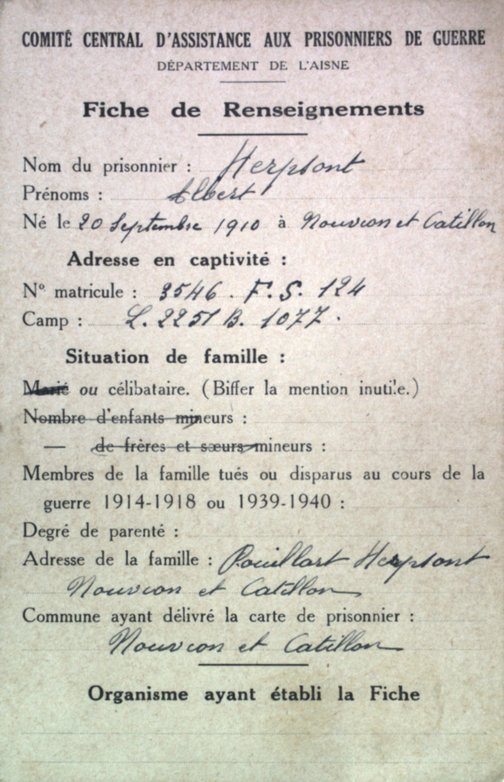 COMITÉ CENTRAL D'ASSISTANCE AUX PRISONNIERS DE GUERRE
DÉPARTEMENT DE L'AISNE
Fiche de Renseignements
Nom du prisonnier : Herpsont
Prénoms : Albert
Né le 20 Septembre 1910 à Nouvion et Catillon
Adresse en captivité :
N° matricule : 3546. F.S. 124
Camp : L. 2251 B. 1077.
Situation de famille :
Marié ou célibataire. (Biffer la mention inutile.)
Nombre d'enfants mineurs :
— de frères et sœurs mineurs :
Membres de la famille tués ou disparus au cours de la
guerre 1914-1918 ou 1939-1940 :
Degré de parenté :
Adresse de la famille : Pouillart Herpsont
Nouvion et Catillon
Commune ayant délivré la carte de prisonnier :
Nouvion et Catillon
Organisme ayant établi la Fiche